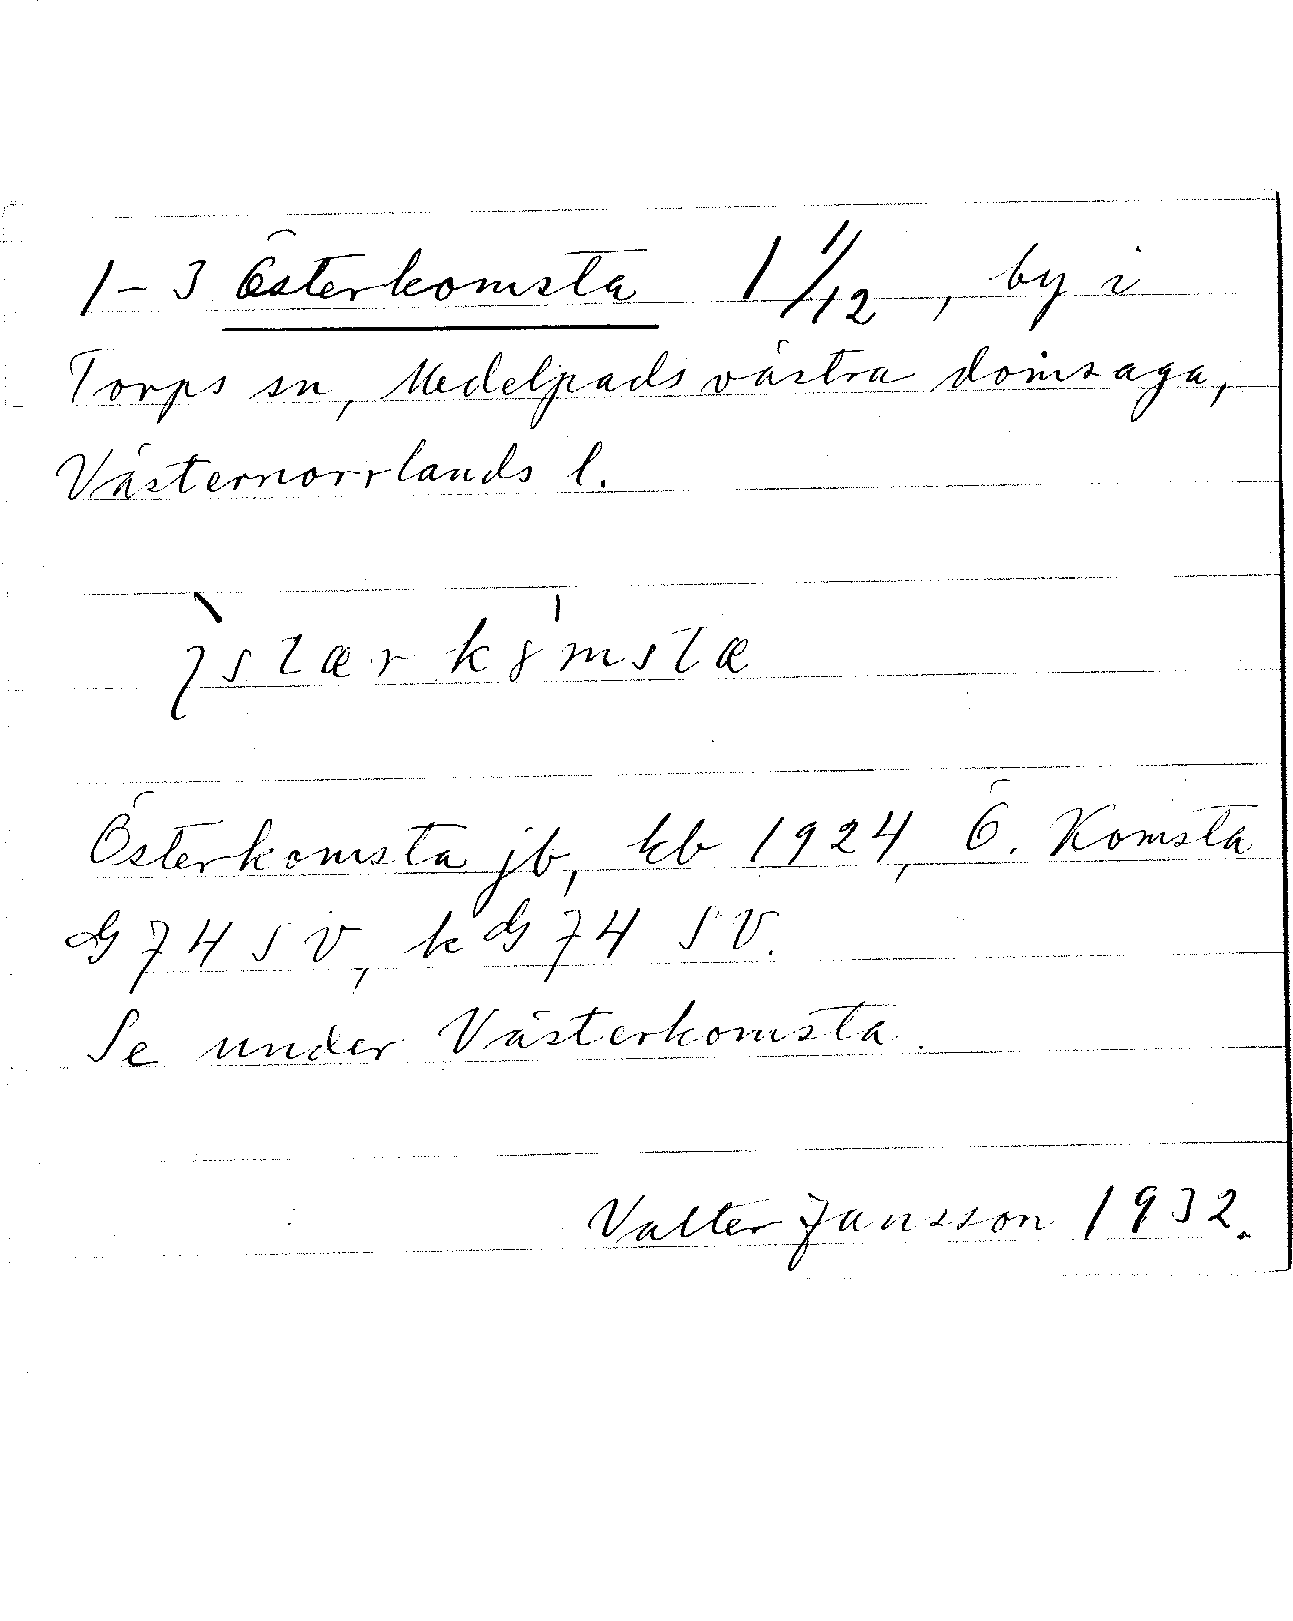 1-3 Österkomsta 1 1/12, by i
Torps sn, Medelpads västra domsaga,
Västernorrlands l.
Österkomsta jb, kb 1924, Ö. Komsta
G 74 SV, kG 74 SV.
Se under Västerkomsta.
Valter Jansson 1932.